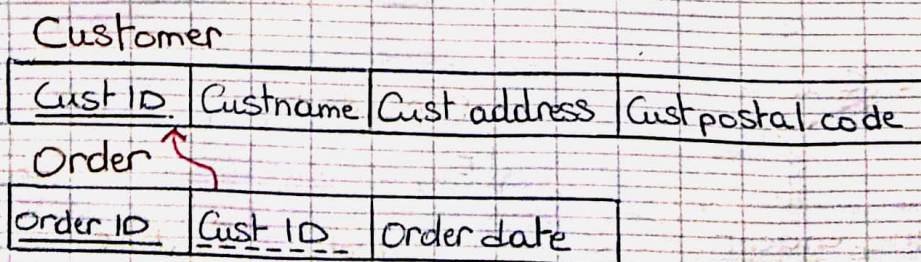 Customer
Cust ID Custname Cust address Cust postal code
Order
Order ID Cust ID Order date